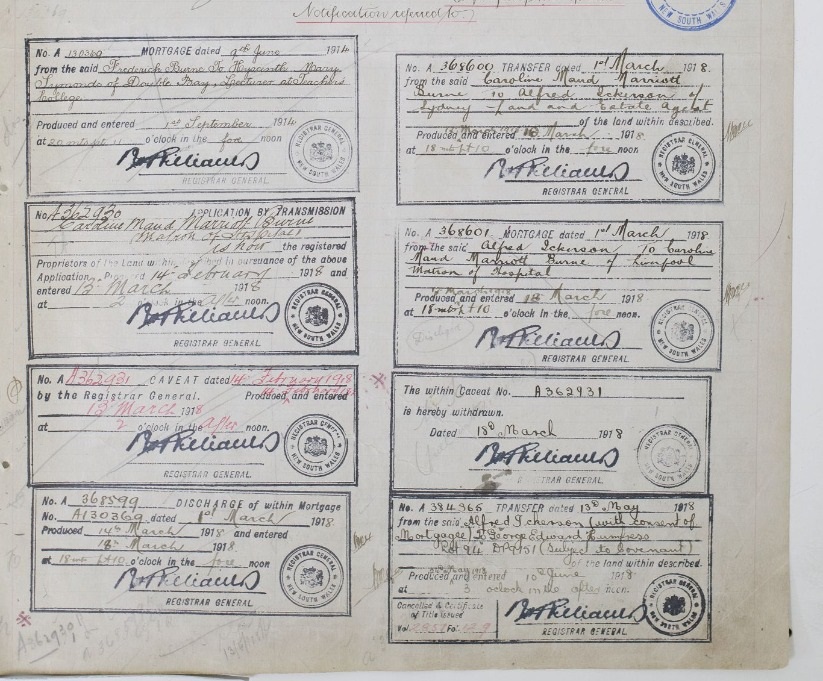 Notification referred to
No. A 130369 MORTGAGE dated 9th June 1914
from the said Frederick Burne To Hyacinth Mary
Symonds of Double Bay, Lecturer at Teachers
College
Produced and entered 1st September 1914
at 20 mts pt 11 o'clock in the fore noon
REGISTRAR GENERAL
NEW SOUTH WALES
REGISTRAR GENERAL.
No. A362930 APPLICATION BY TRANSMISSION
Caroline Maud Marriott Burne
Matron of Hospital
is now the registered
Proprietors of the Land within described in pursuance of the above
Application, Produced 14th February 1918 and
entered 13th March 1918
at 2 o'clock in the after noon.
REGISTRAR GENERAL
NEW SOUTH WALES
REGISTRAR GENERAL.
No. A362931 CAVEAT dated 14th February 1918
by the Registrar General. Produced and entered
13th March 1918
at 2 o'clock in the after noon.
REGISTRAR GENERAL
NEW SOUTH WALES
REGISTRAR GENERAL.
No. A 368599 DISCHARGE of within Mortgage
No. A130369 dated 1st March 1918
Produced 14th March 1918 and entered
18th March 1918
at 18 mts pt 10 o'clock in the fore noon.
REGISTRAR GENERAL
NEW SOUTH WALES
REGISTRAR GENERAL.
A362930
No. A 368600 TRANSFER dated 1st March 1918.
from the said Caroline Maud Marriott
Burne to Alfred Ickerson of
Sydney Land and Estate Agent
of the land within described.
Produced and entered 18 March 1918
at 18 mts pt 10 o'clock in the fore noon
REGISTRAR GENERAL
NEW SOUTH WALES
REGISTRAR GENERAL.
No. A 368601 MORTGAGE dated 1st March 1918
from the said Alfred Ickerson to Caroline
Maud Marriott Burne of Liverpool
Matron of Hospital
Produced and entered 18 March 1918
at 18 mts pt 10 o'clock in the fore noon.
REGISTRAR GENERAL
NEW SOUTH WALES
REGISTRAR GENERAL.
The within Caveat No. A362931
is hereby withdrawn.
Dated 18th March 1918
REGISTRAR GENERAL
REGISTRAR GENERAL.
No. A 384365 TRANSFER dated 13th May 1918
from the said Alfred Ickerson (with consent of
Mortgagee) To George Edward
Lot 94 (Subject to Covenant)
of the land within described.
Produced and entered 10th June 1918
at 3 o'clock in the after noon.
Cancelled & Certificate
of Title issued
Vol. Fol.
REGISTRAR GENERAL
NEW SOUTH WALES
REGISTRAR GENERAL.
NEW SOUTH WALES